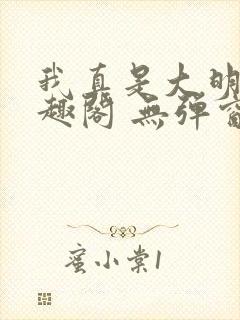 我真是大明
趣阁 無弹窗
蜜小棠1